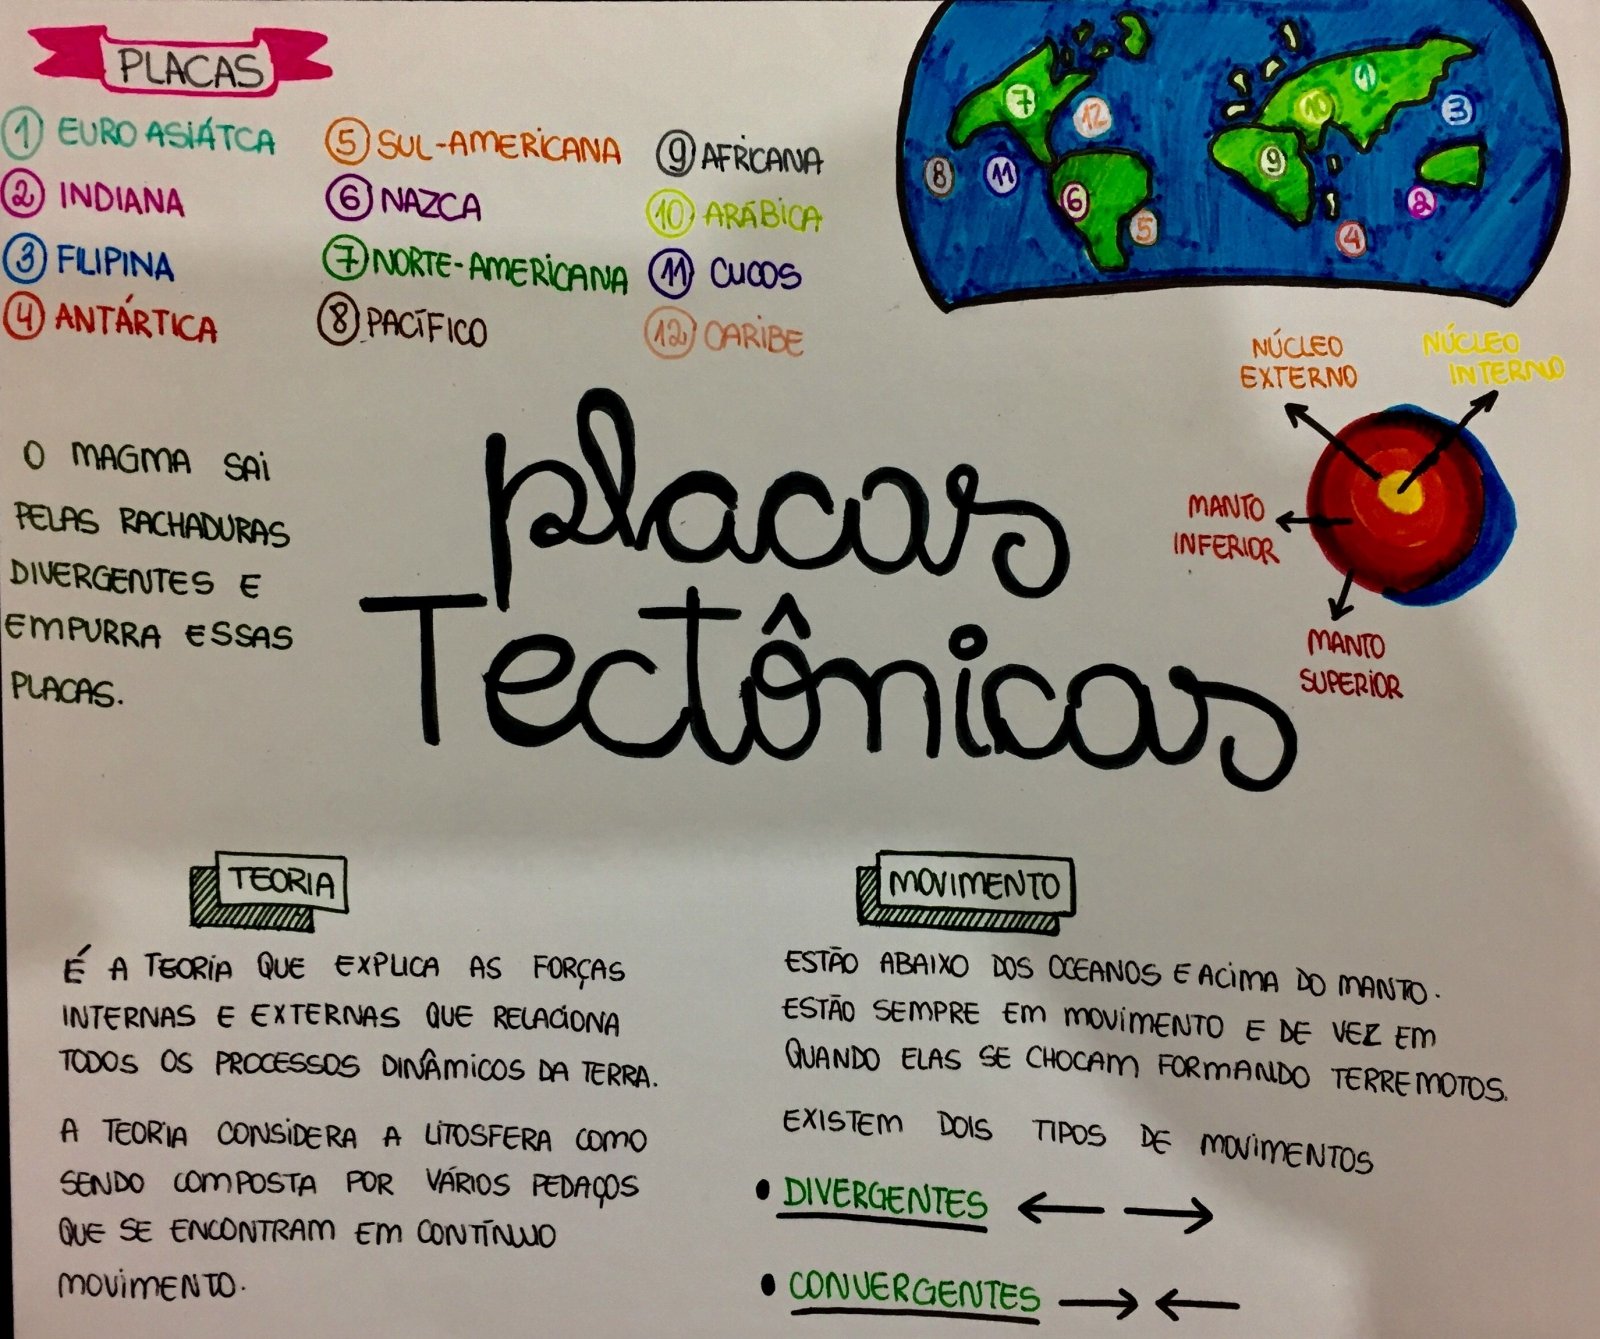 PLACAS
1 EUROASIÁTCA
2 INDIANA
3 FILIPINA
4 ANTÁRTICA
5 SUL-AMERICANA
6 NAZCA
7 NORTE-AMERICANA
8 PACÍFICO
9 AFRICANA
10 ARÁBICA
11 CUCOS
12 CARIBE
7
12
8
11
6
5
9
10
1
3
2
4
NÚCLEO
EXTERNO
NÚCLEO
INTERNO
MANTO
INFERIOR
MANTO
SUPERIOR
O MAGMA SAI
PELAS RACHADURAS
DIVERGENTES E
EMPURRA ESSAS
PLACAS.
placas
Tectônicas
TEORIA
É A TEORIA QUE EXPLICA AS FORÇAS
INTERNAS E EXTERNAS QUE RELACIONA
TODOS OS PROCESSOS DINÂMICOS DA TERRA.
A TEORIA CONSIDERA A LITOSFERA COMO
SENDO COMPOSTA POR VÁRIOS PEDAÇOS
QUE SE ENCONTRAM EM CONTÍNUO
MOVIMENTO.
MOVIMENTO
ESTÃO ABAIXO DOS OCEANOS E ACIMA DO MANTO.
ESTÃO SEMPRE EM MOVIMENTO E DE VEZ EM
QUANDO ELAS SE CHOCAM FORMANDO TERREMOTOS.
EXISTEM DOIS TIPOS DE MOVIMENTOS
• DIVERGENTES ← →
• CONVERGENTES → ←